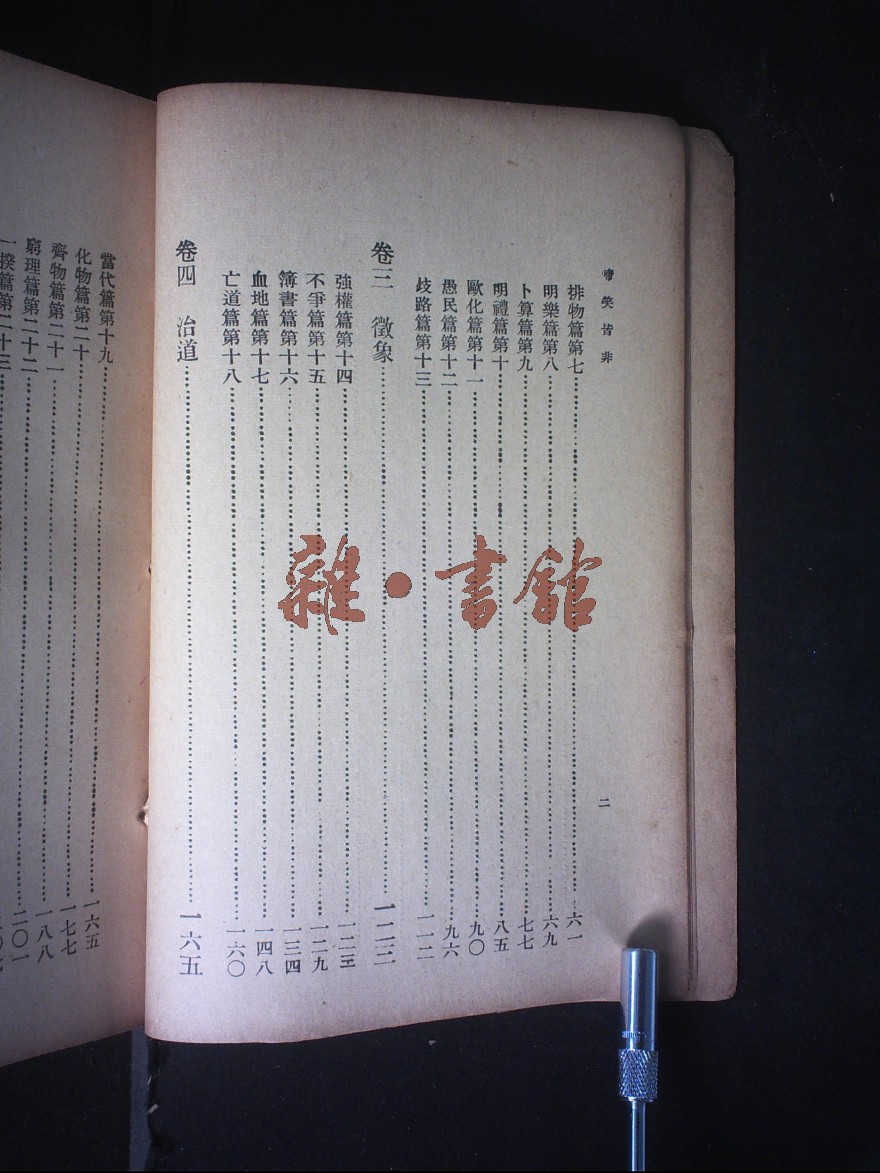 啼笑皆非
二
排物篇第七……六一
明樂篇第八……六九
卜算篇第九……七七
明禮篇第十……八五
歐化篇第十一……九〇
愚民篇第十二……九六
歧路篇第十三……一一二
卷三 徵象……一二三
強權篇第十四……一二三
不爭篇第十五……一二九
簿書篇第十六……一三四
血地篇第十七……一四八
亡道篇第十八……一六〇
卷四 治道……一六五
當代篇第十九……一六五
化物篇第二十……一七七
齊物篇第二十一……一八八
窮理篇第二十二……二〇一
一揆篇第二十三
雜·書館